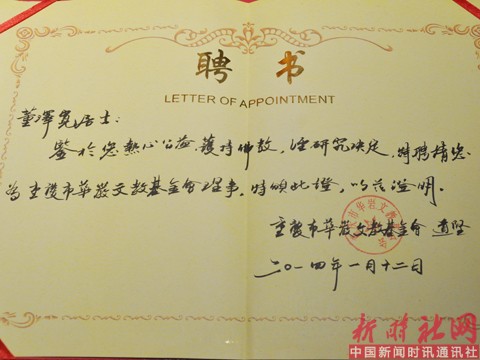 聘书
LETTER OF APPOINTMENT
董澤居士:
鉴於您熱心公益,護持佛教,经研究决定,特聘請您
為重慶市華嚴文教基金會理事,特頒此證,以兹證明。
重慶市華嚴文教基金會 道坚
二〇一四年一月十二日
新时社网
中国新闻时讯通讯社